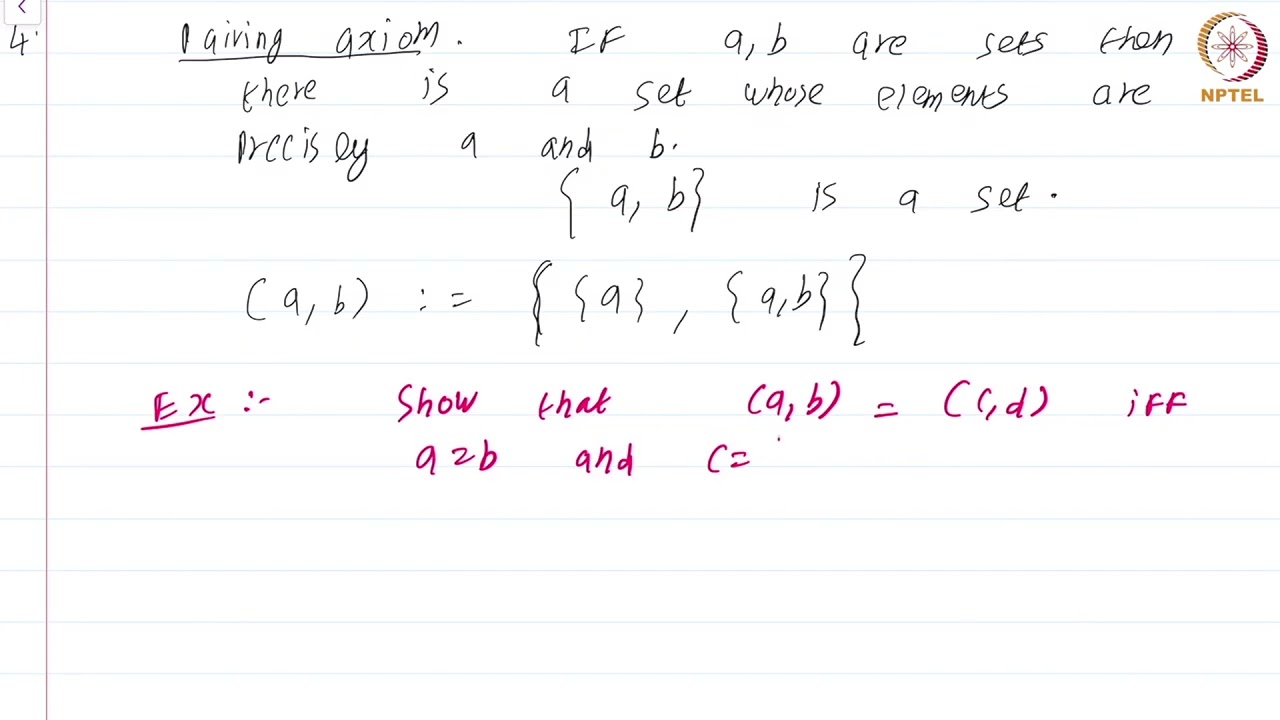 4. Pairing axiom. If a, b are sets then
NPTEL
there is a set whose elements are
precisely a and b.
{ a, b } is a set.
(a, b) := { {a} , {a,b} }
Ex :- Show that (a, b) = (c, d) iff
a = b and c =